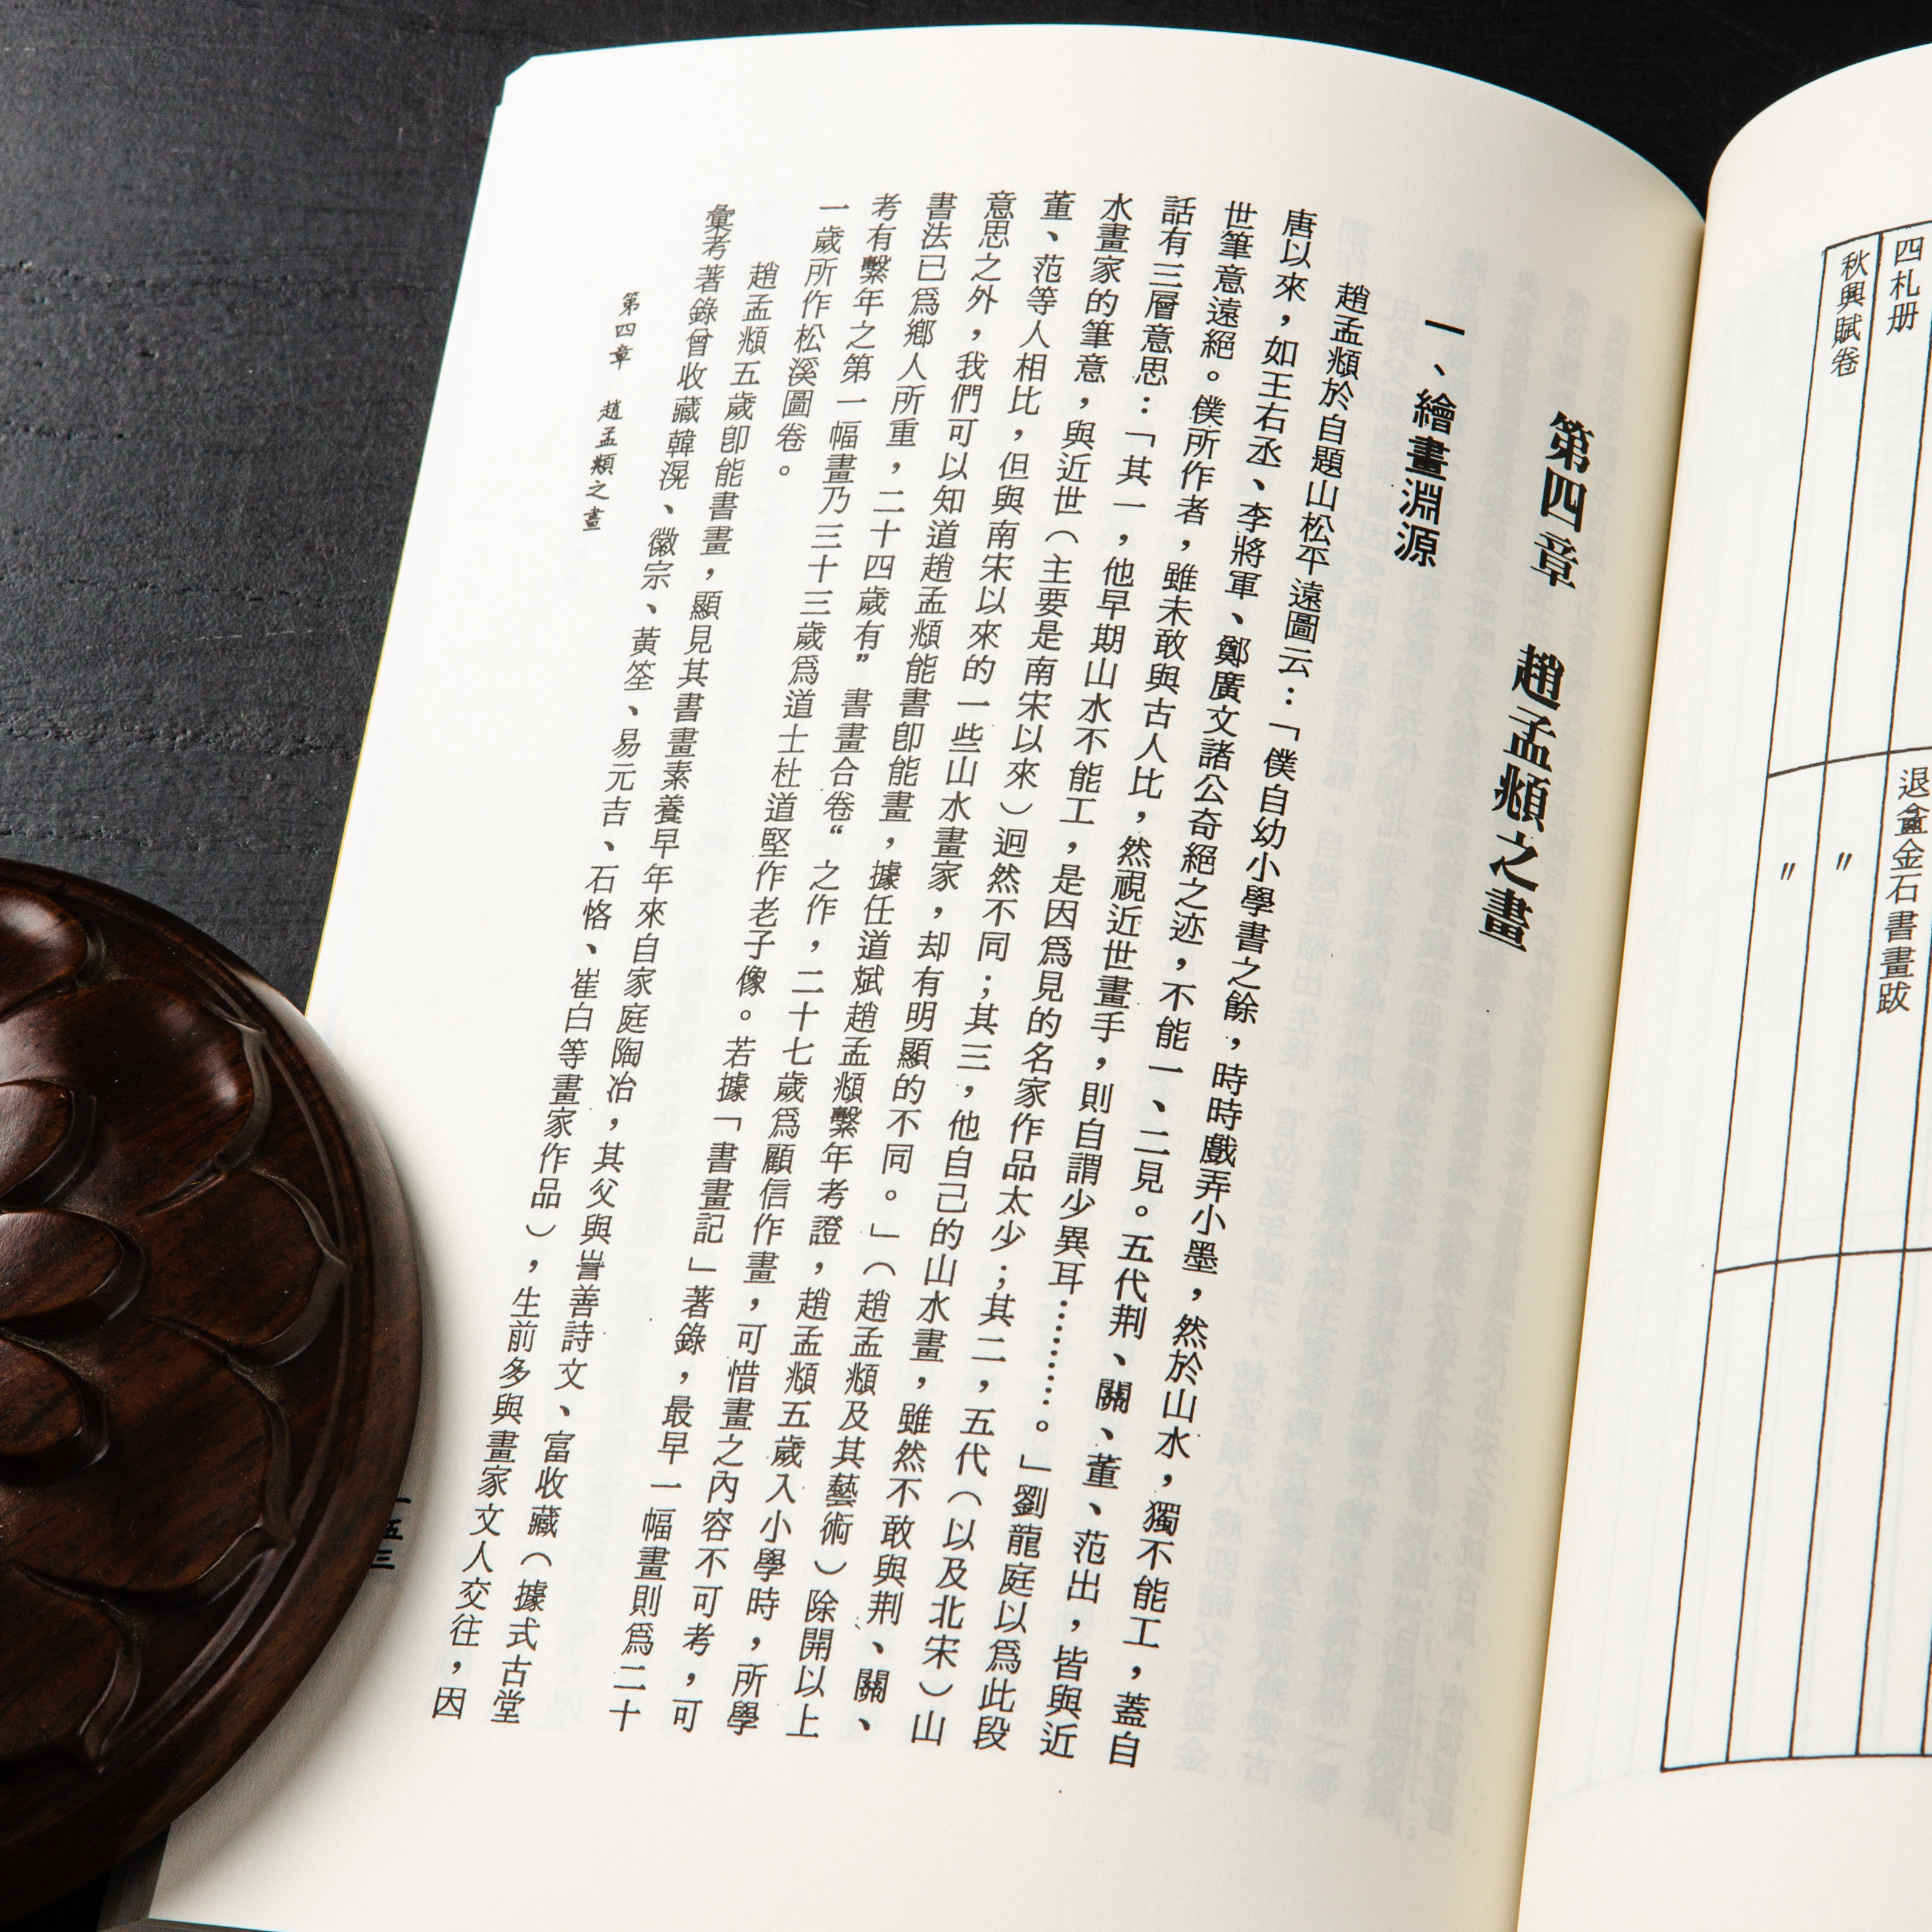 退盦金石書畫跋
四札册
〃
秋興賦卷
〃
第四章　趙孟頫之畫
一、繪畫淵源
趙孟頫於自題山松平遠圖云：「僕自幼小學書之餘，時時戲弄小墨，然於山水，獨不能工，蓋自
唐以來，如王右丞、李將軍、鄭廣文諸公奇絕之迹，不能一、二見。五代荆、關、董、范出，皆與近
世筆意遠絕。僕所作者，雖未敢與古人比，然視近世畫手，則自謂少異耳…………。」劉龍庭以爲此段
話有三層意思：「其一，他早期山水不能工，是因爲見的名家作品太少；其二，五代（以及北宋）山
水畫家的筆意，與近世（主要是南宋以來）迥然不同；其三，他自己的山水畫，雖然不敢與荆、關、
董、范等人相比，但與南宋以來的一些山水畫家，却有明顯的不同。」（趙孟頫及其藝術）除開以上
意思之外，我們可以知道趙孟頫能書卽能畫，據任道斌趙孟頫繫年考證，趙孟頫五歲入小學時，所學
書法已爲鄉人所重，二十四歲有”書畫合卷“之作，二十七歲爲顧信作畫，可惜畫之內容不可考，可
考有繫年之第一幅畫乃三十三歲爲道士杜道堅作老子像。若據「書畫記」著錄，最早一幅畫則爲二十
一歲所作松溪圖卷。
趙孟頫五歲卽能書畫，顯見其書畫素養早年來自家庭陶冶，其父與訔善詩文、富收藏（據式古堂
彙考著錄曾收藏韓滉、徽宗、黃筌、易元吉、石恪、崔白等畫家作品），生前多與畫家文人交往，因
第四章　趙孟頫之畫
一五三